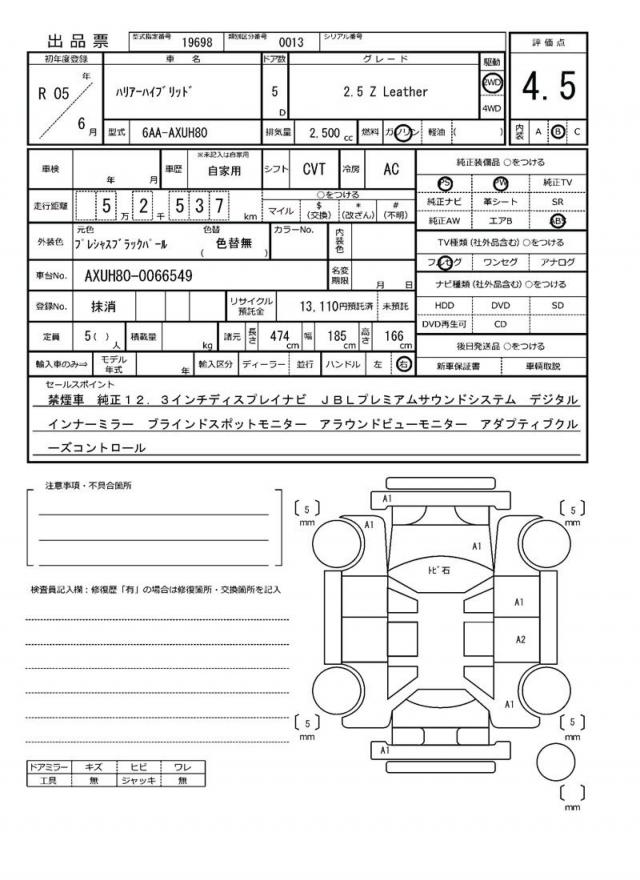 出品票 型式指定番号 19698 類別区分番号 0013 シリアル番号
初年度登録 車 名 ドア数 グレード 駆動 評価点
R 05 年 6 月 ハリアーハイブリッド 5 D 2.5 Z Leather 2WD 4WD 4.5
型式 6AA-AXUH80 排気量 2,500 cc 燃料 ガソリン 軽油 ( ) 内装 A B C
車検 年 月 車歴 ※未記入は自家用 自家用 シフト CVT 冷房 AC
走行距離 5 万 2 千 5 3 7 km ○をつける マイル $ (交換) * (改ざん) # (不明)
外装色 元色 プレシャスブラックパール 色替 ( 色替無 ) カラーNo. 内装色
車台No. AXUH80-0066549 名変期限 月 日
登録No. 抹消 リサイクル預託金 13,110円預託済 未預託
定員 5( ) 人 積載量 kg 諸元 長さ 474 cm 幅 185 cm 高さ 166 cm
輸入車のみ⇒ モデル年式 年 輸入区分 ディーラー 並行 ハンドル 左 右
純正装備品 ○をつける
PS PW 純正TV
純正ナビ 革シート SR
純正AW エアB ABS
TV種類 (社外品含む) ○をつける
フルセグ ワンセグ アナログ
ナビ種類 (社外品含む) ○をつける
HDD DVD SD
DVD再生可 CD
後日発送品 ○をつける
新車保証書 車輌取説
セールスポイント
禁煙車 純正12.3インチディスプレイナビ JBLプレミアムサウンドシステム デジタル
インナーミラー ブラインドスポットモニター アラウンドビューモニター アダプティブクル
ーズコントロール
注意事項・不具合箇所
検査員記入欄:修復歴「有」の場合は修復箇所・交換箇所を記入
ドアミラー キズ ヒビ ワレ
工具 無 ジャッキ 無
A1
5 mm
A1
5 mm
A1
トビ石
A1
A2
A1
5 mm
5 mm
A1
mm